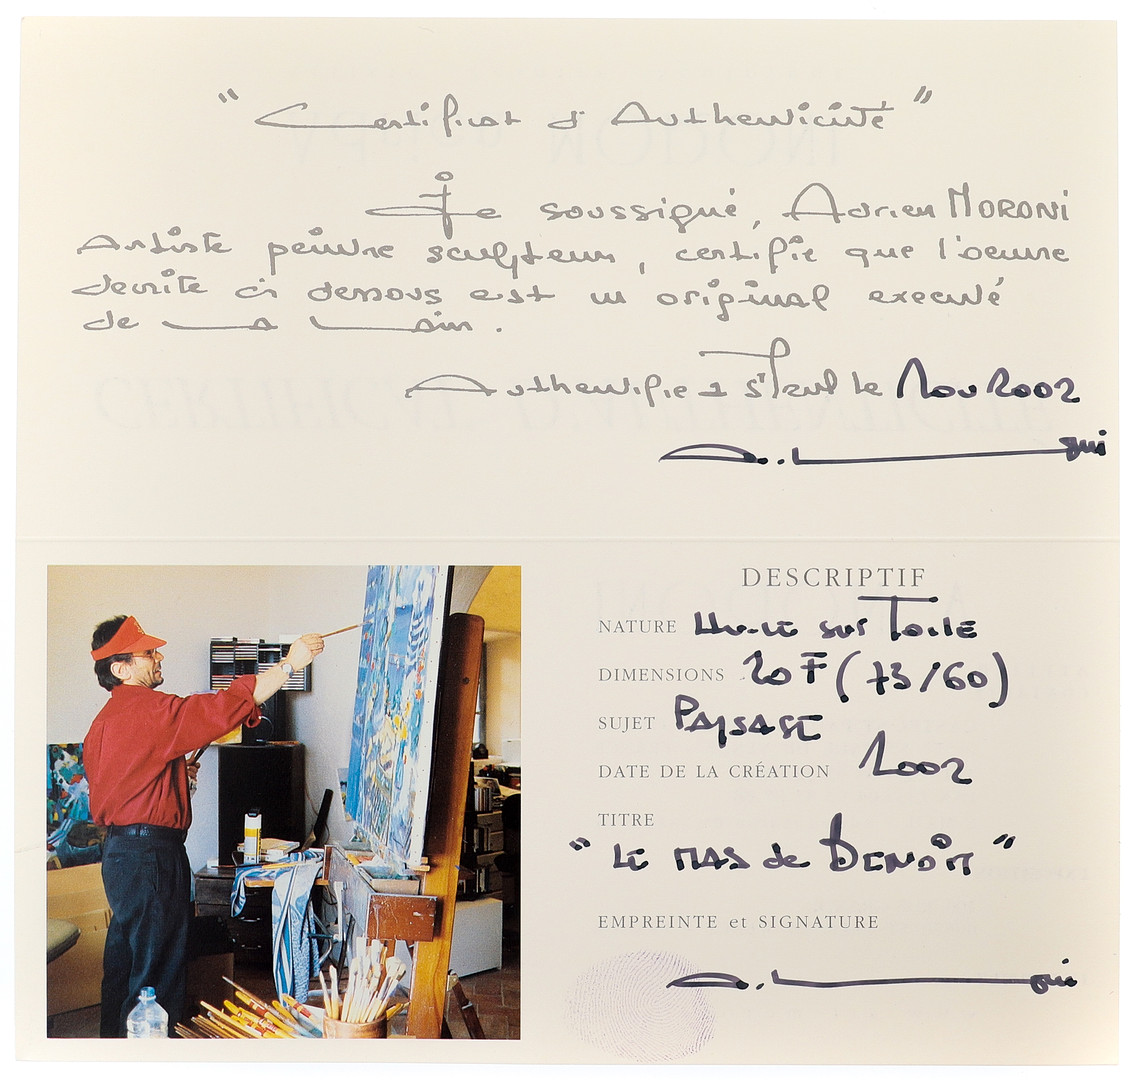 "Certificat d'Authenticité"
Je soussigné, Adrien MORONI
Artiste peintre sculpteur, certifie que l'oeuvre
decrite ci dessous est un original executé
de ma main.
Authentifie a St Paul le Nov 2002
DESCRIPTIF
NATURE Huile sur Toile
DIMENSIONS 20F (73/60)
SUJET PAYSAGE
DATE DE LA CRÉATION 2002
TITRE
"LE MAS de BENOÎT"
EMPREINTE et SIGNATURE